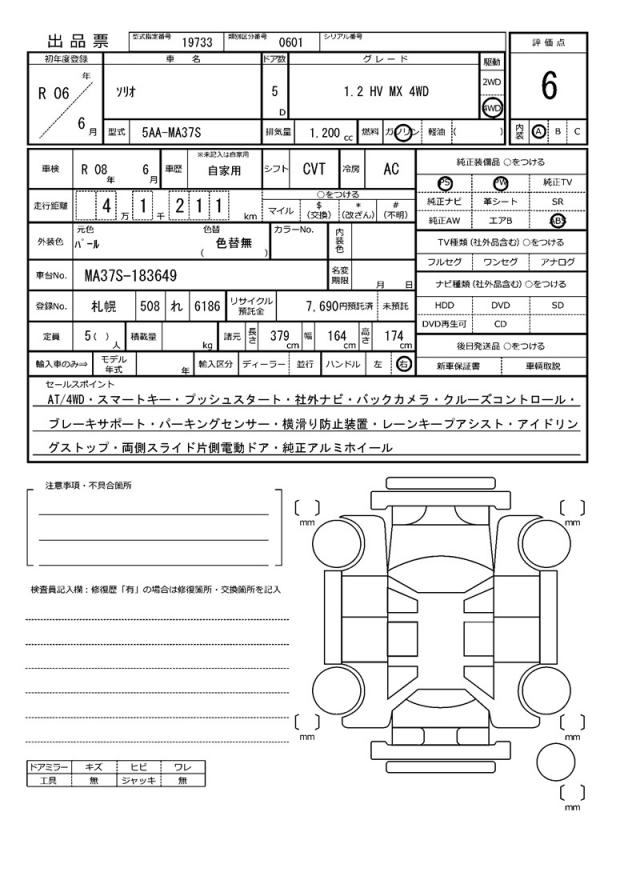 出品票
型式指定番号 19733 類別区分番号 0601 シリアル番号
初年度登録 車名 ドア数 グレード 駆動 評価点
R 06 年 6 月 ソリオ 5 D 1.2 HV MX 4WD 2WD 4WD 6
型式 5AA-MA37S 排気量 1.200 cc 燃料 ガソリン 軽油 ( ) 内装 A B C
車検 R 08 年 6 月 車歴 ※未記入は自家用 自家用 シフト CVT 冷房 AC
純正装備品 ○をつける
PS PW 純正TV
純正ナビ 革シート SR
純正AW エアB ABS
走行距離 4 万 1 千 2 1 1 km
○をつける
マイル $(交換) *(改ざん) #(不明)
外装色 元色 パール 色替 色替無 ( ) カラーNo. 内装色
TV種類 (社外品含む) ○をつける
フルセグ ワンセグ アナログ
車台No. MA37S-183649 名変期限 月 日
ナビ種類 (社外品含む) ○をつける
登録No. 札幌 508 れ 6186 リサイクル預託金 7,690円預託済 未預託
HDD DVD SD
DVD再生可 CD
定員 5( ) 人 積載量 kg 諸元 長さ 379 cm 幅 164 cm 高さ 174 cm
後日発送品 ○をつける
輸入車のみ⇒ モデル年式 年 輸入区分 ディーラー 並行 ハンドル 左 右
新車保証書 車輌取説
セールスポイント
AT/4WD・スマートキー・プッシュスタート・社外ナビ・バックカメラ・クルーズコントロール・
ブレーキサポート・パーキングセンサー・横滑り防止装置・レーンキープアシスト・アイドリン
グストップ・両側スライド片側電動ドア・純正アルミホイール
注意事項・不具合箇所
検査員記入欄：修復歴「有」の場合は修復箇所・交換箇所を記入
mm mm
mm mm
mm
ドアミラー キズ ヒビ ワレ
工具 無 ジャッキ 無